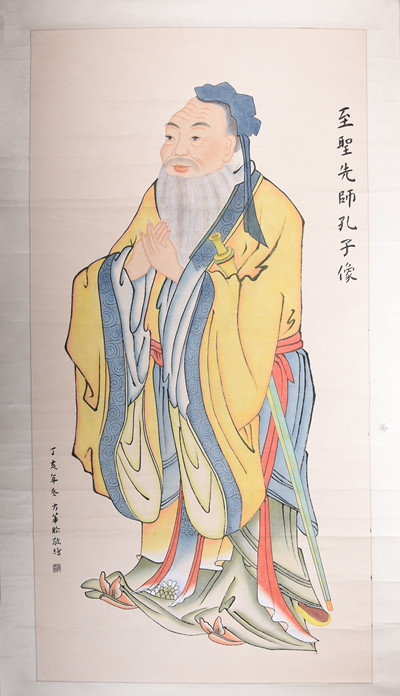 至聖先師孔子像
丁亥年冬 方筆敬繪